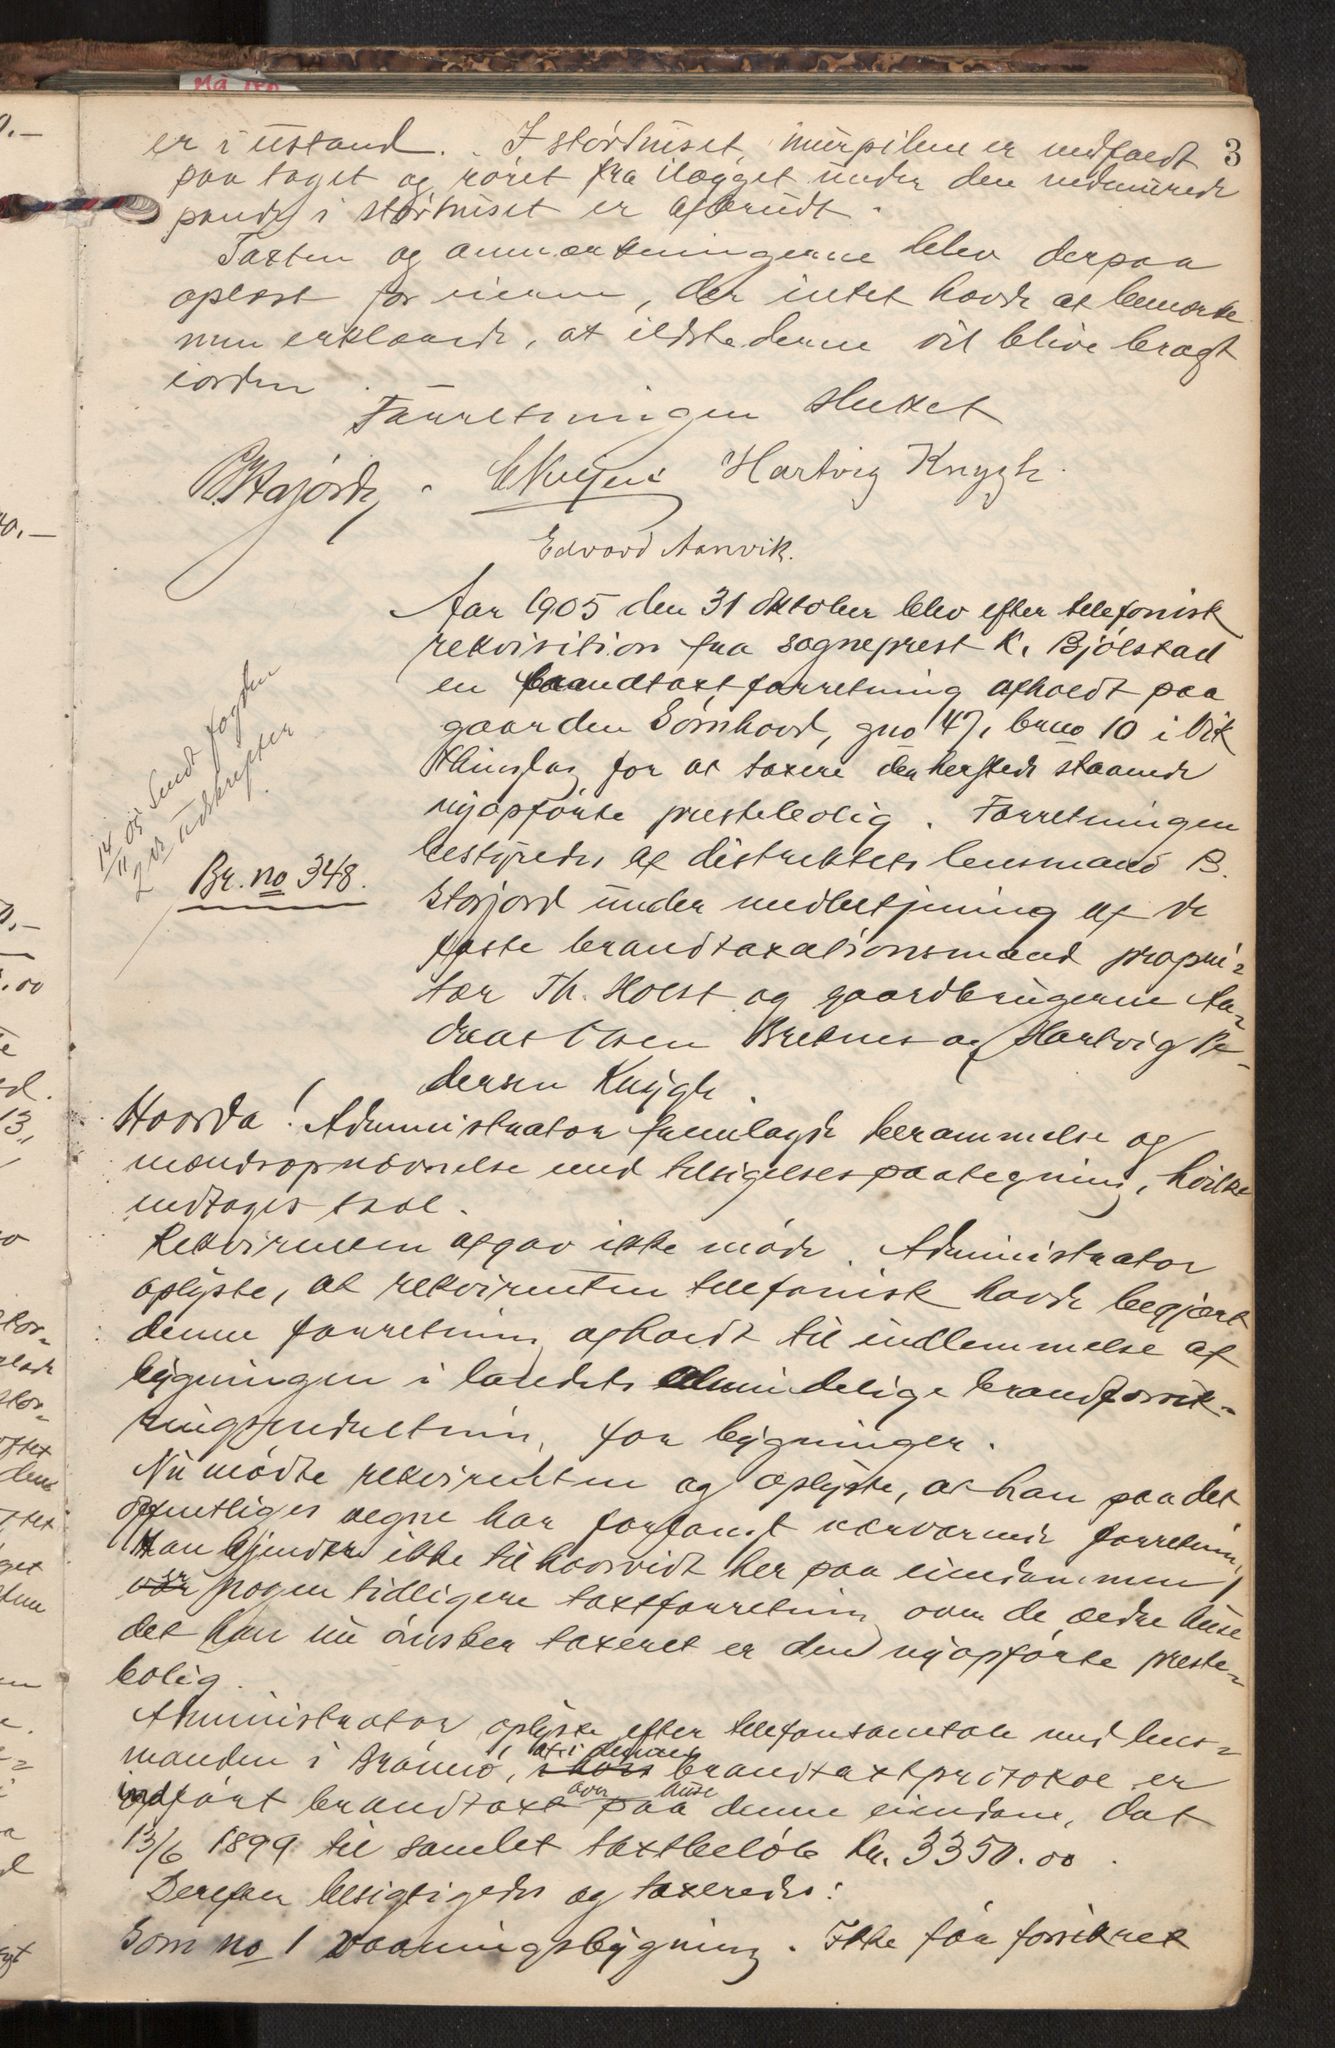 3
er i ustand. I störhuset, murpiben er nedfaldt
paa taget og röret fra ilægget under den nedmurede
pande i störhuset er afbrudt.
Taxten og anmærkningerne blev derpaa
oplæst for eieren, der intet havde at bemærke
men erklærede, at ildstederne vil blive bragt
iorden.
Forretningen sluttet
B. Storjord. Hartvig Knygh.
Edvard Aanvik.
Aar 1905 den 31 oktober blev efter telefonisk
rekvisition fra sogneprest K. Bjölstad
en brandtaxtforretning afholdt paa
gaarden Sömhovd, gno 47, bruno 10 i Vik
thinglag for at taxere den hersteds staaende
nyopförte prestebolig. Forretningen
bestyredes af distriktets lensmand B.
Storjord under medbetjening af de
faste brandtaxationsmænd proprie-
tær Th. Holst og gaardbrugerne An-
dreas Olsen Breknes og Hartvig Pe-
dersen Knygh.
14/11 05 Sendt fogden
2 de udskrifter
Br. no 348.
Hvorda! Administrator fremlagde berammelse og
mændsopnævnelse med tilsigelsespaategning, hvilke
indtages skal.
Rekvirenten afgav ikke möde. Administrator
oplyste, at rekvirenten telefonisk havde begjært
denne forretning afholdt til indlemmelse af
bygningen i landets almindelige brandforsik-
ringsindretning for bygninger.
Nu mödte rekvirenten og oplyste, at han paa det
offentliges vegne har forlangt nærværende forretning.
Han kjender ikke til hvorvidt her paa eiendommen
er nogen tidligere taxtforretning over de ældre huse
det han nu önsker taxeret er den nyopförte preste-
bolig.
Administrator oplyste efter telefonsamtale med lens-
manden i Brönnö, at i dennes brandtaxtprotokol er
indfört brandtaxt over huse paa denne eiendom, dat
13/6 1899 til samlet taxtbelöb Kr. 3350.00.
Derefter besigtigedes og taxeredes:
Som no 1 Vaaningsbygning. Ikke för forsikret